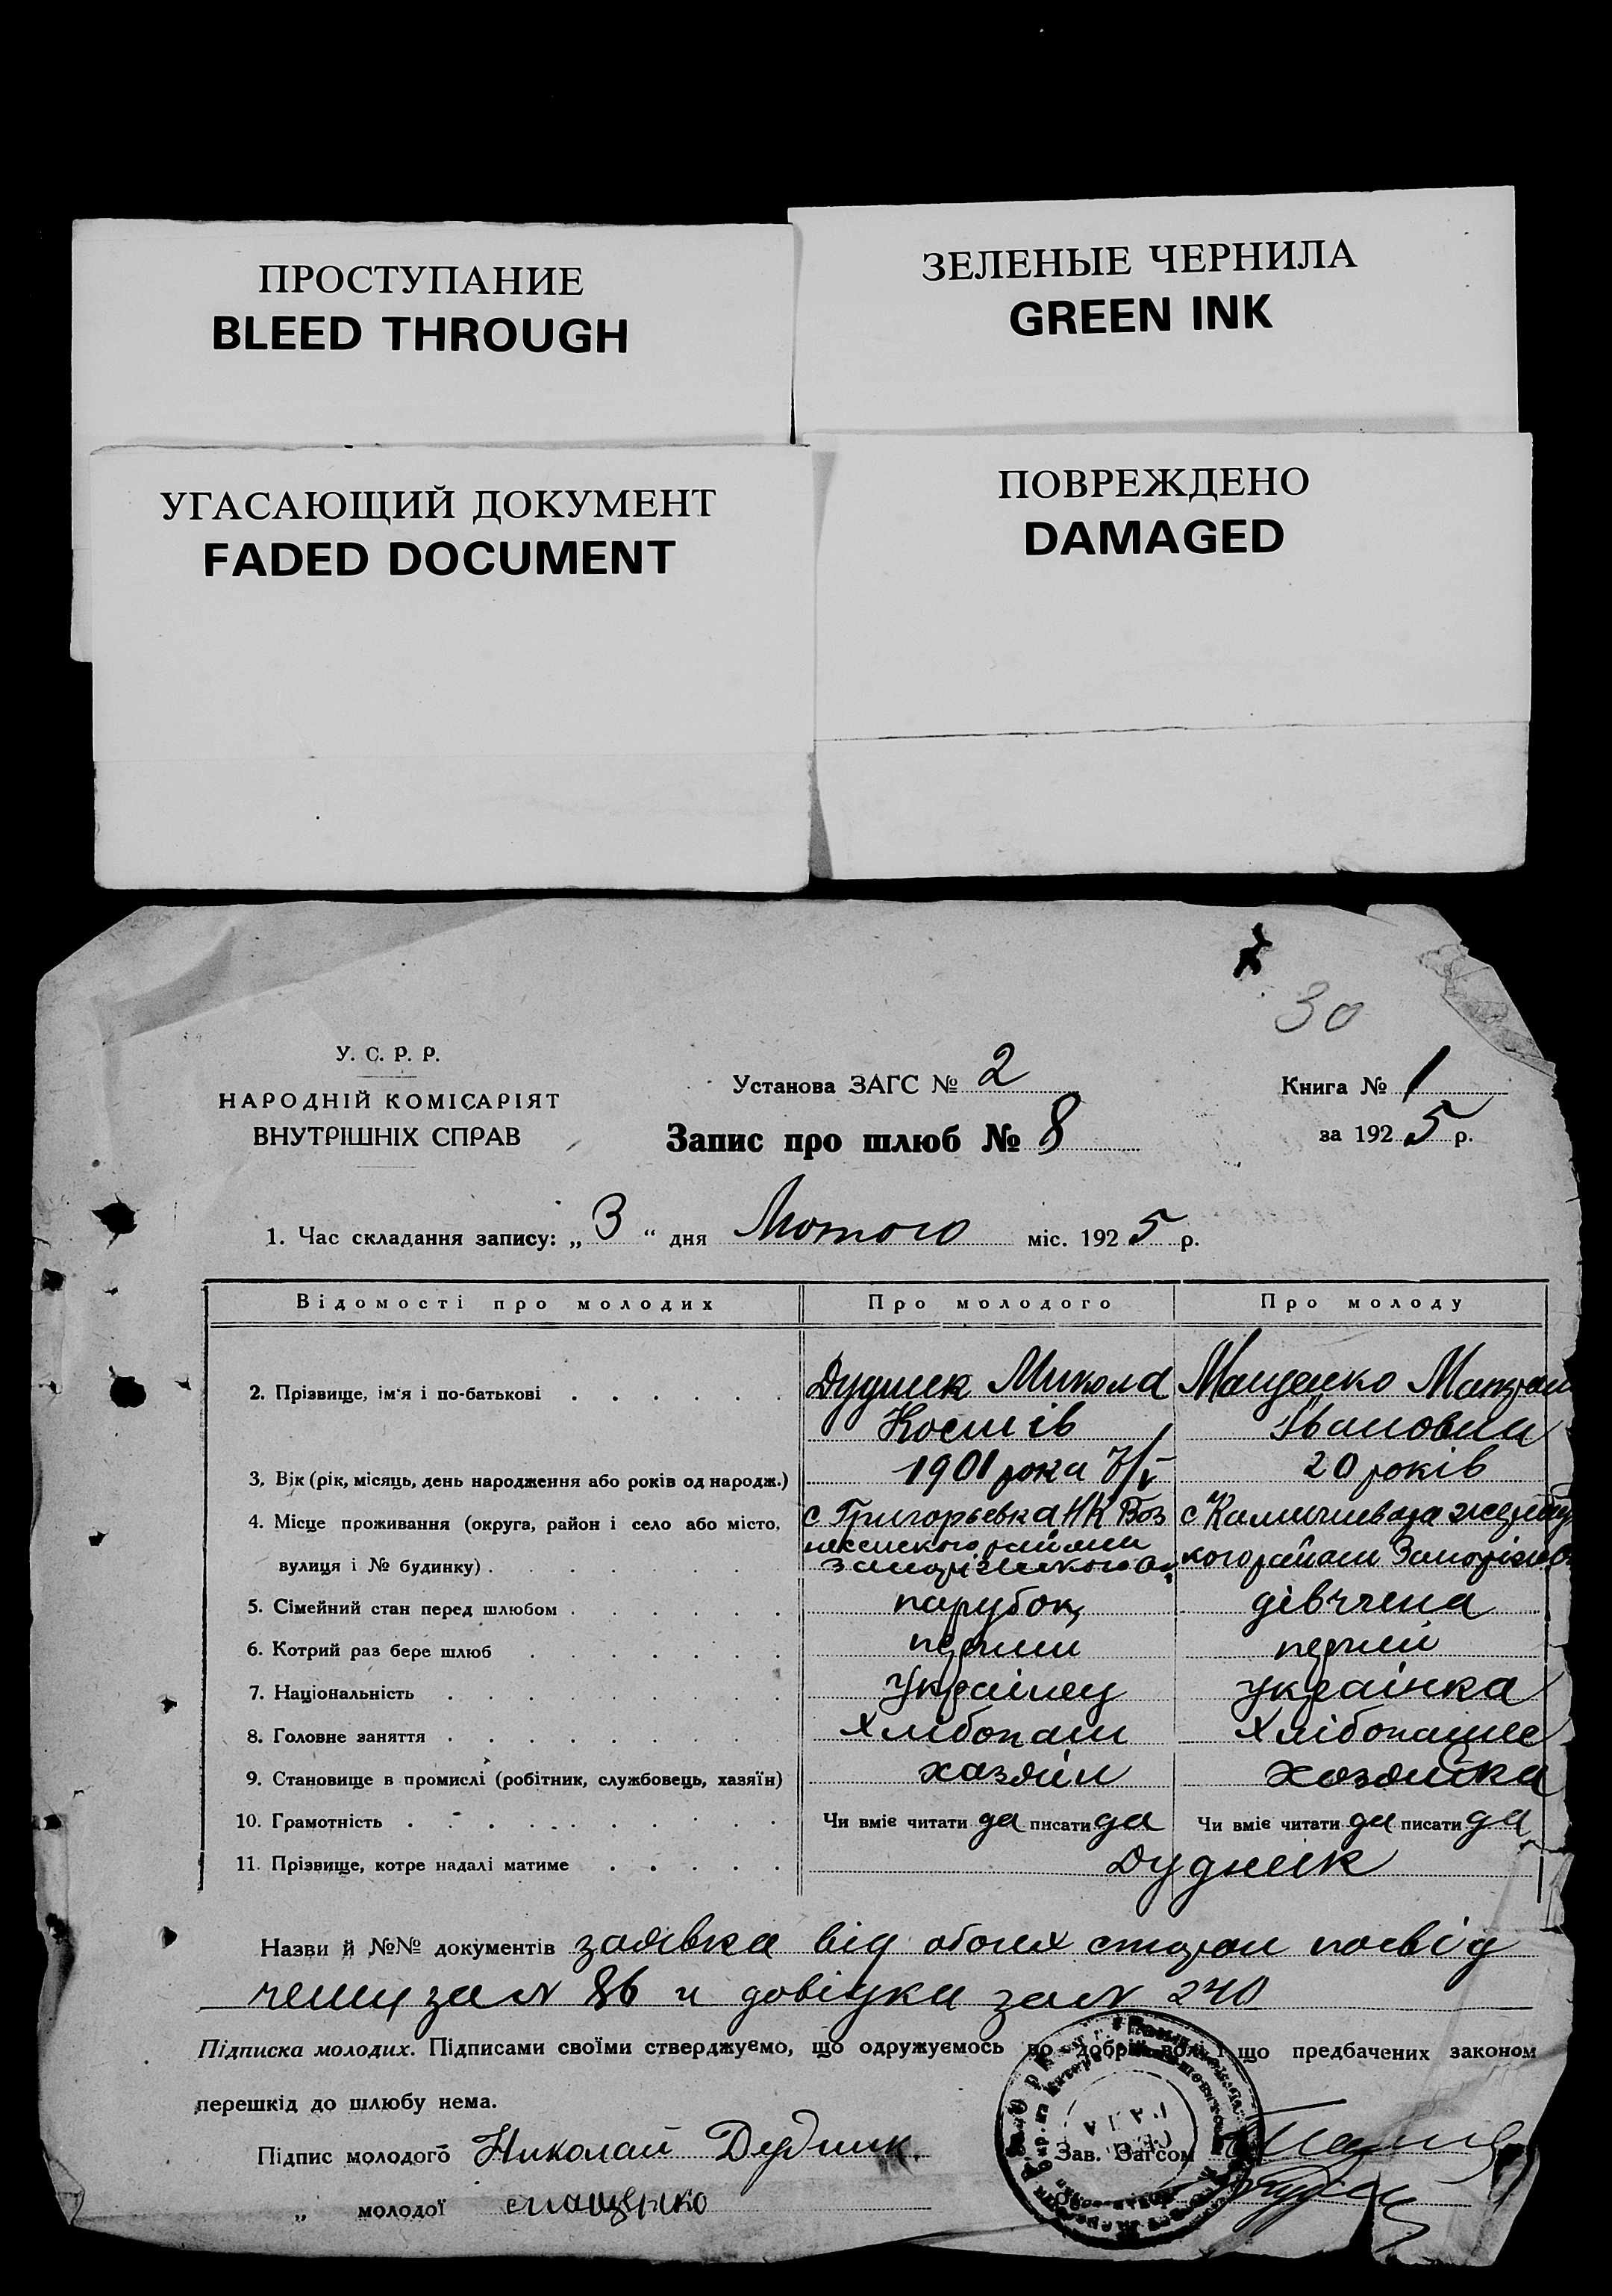 ПРОСТУПАНИЕ
BLEED THROUGH
ЗЕЛЕНЫЕ ЧЕРНИЛА
GREEN INK
УГАСАЮЩИЙ ДОКУМЕНТ
FADED DOCUMENT
ПОВРЕЖДЕНО
DAMAGED
30
У. С. Р. Р.
НАРОДНІЙ КОМІСАРІЯТ
ВНУТРІШНІХ СПРАВ
Установа ЗАГС № 2
Запис про шлюб № 8
Книга № 1
за 1925 р.
1. Час складання запису: „3“ дня Лютого міс. 1925 р.
Відомості про молодих Про молодого Про молоду
2. Прізвище, ім'я і по-батькові Дудник Микола Мащенко
Івановна
3. Вік (рік, місяць, день народження або років од народж.) 1901 рока 20 років
4. Місце проживання (округа, район і село або місто, с Григорьевка с
вулиця і № будинку) района
5. Сімейний стан перед шлюбом парубок дівчена
6. Котрий раз бере шлюб перший перший
7. Національність Украінец украінка
8. Головне заняття хлібопаш
9. Становище в промислі (робітник, службовець, хазяїн) хазяін хозяйка
10. Грамотність Чи вміє читати да писати да Чи вміє читати да писати да
11. Прізвище, котре надалі матиме Дудник
Назви й №№ документів заявка від обоих сторон посвід
за N 86 и довідка за N 240
Підписка молодих. Підписами своїми стверджуємо, що одружуємось по добрій волі і що предбачених законом
перешкід до шлюбу нема.
Підпис молодого Николай Дудник
Зав. Загсом
„ молодої